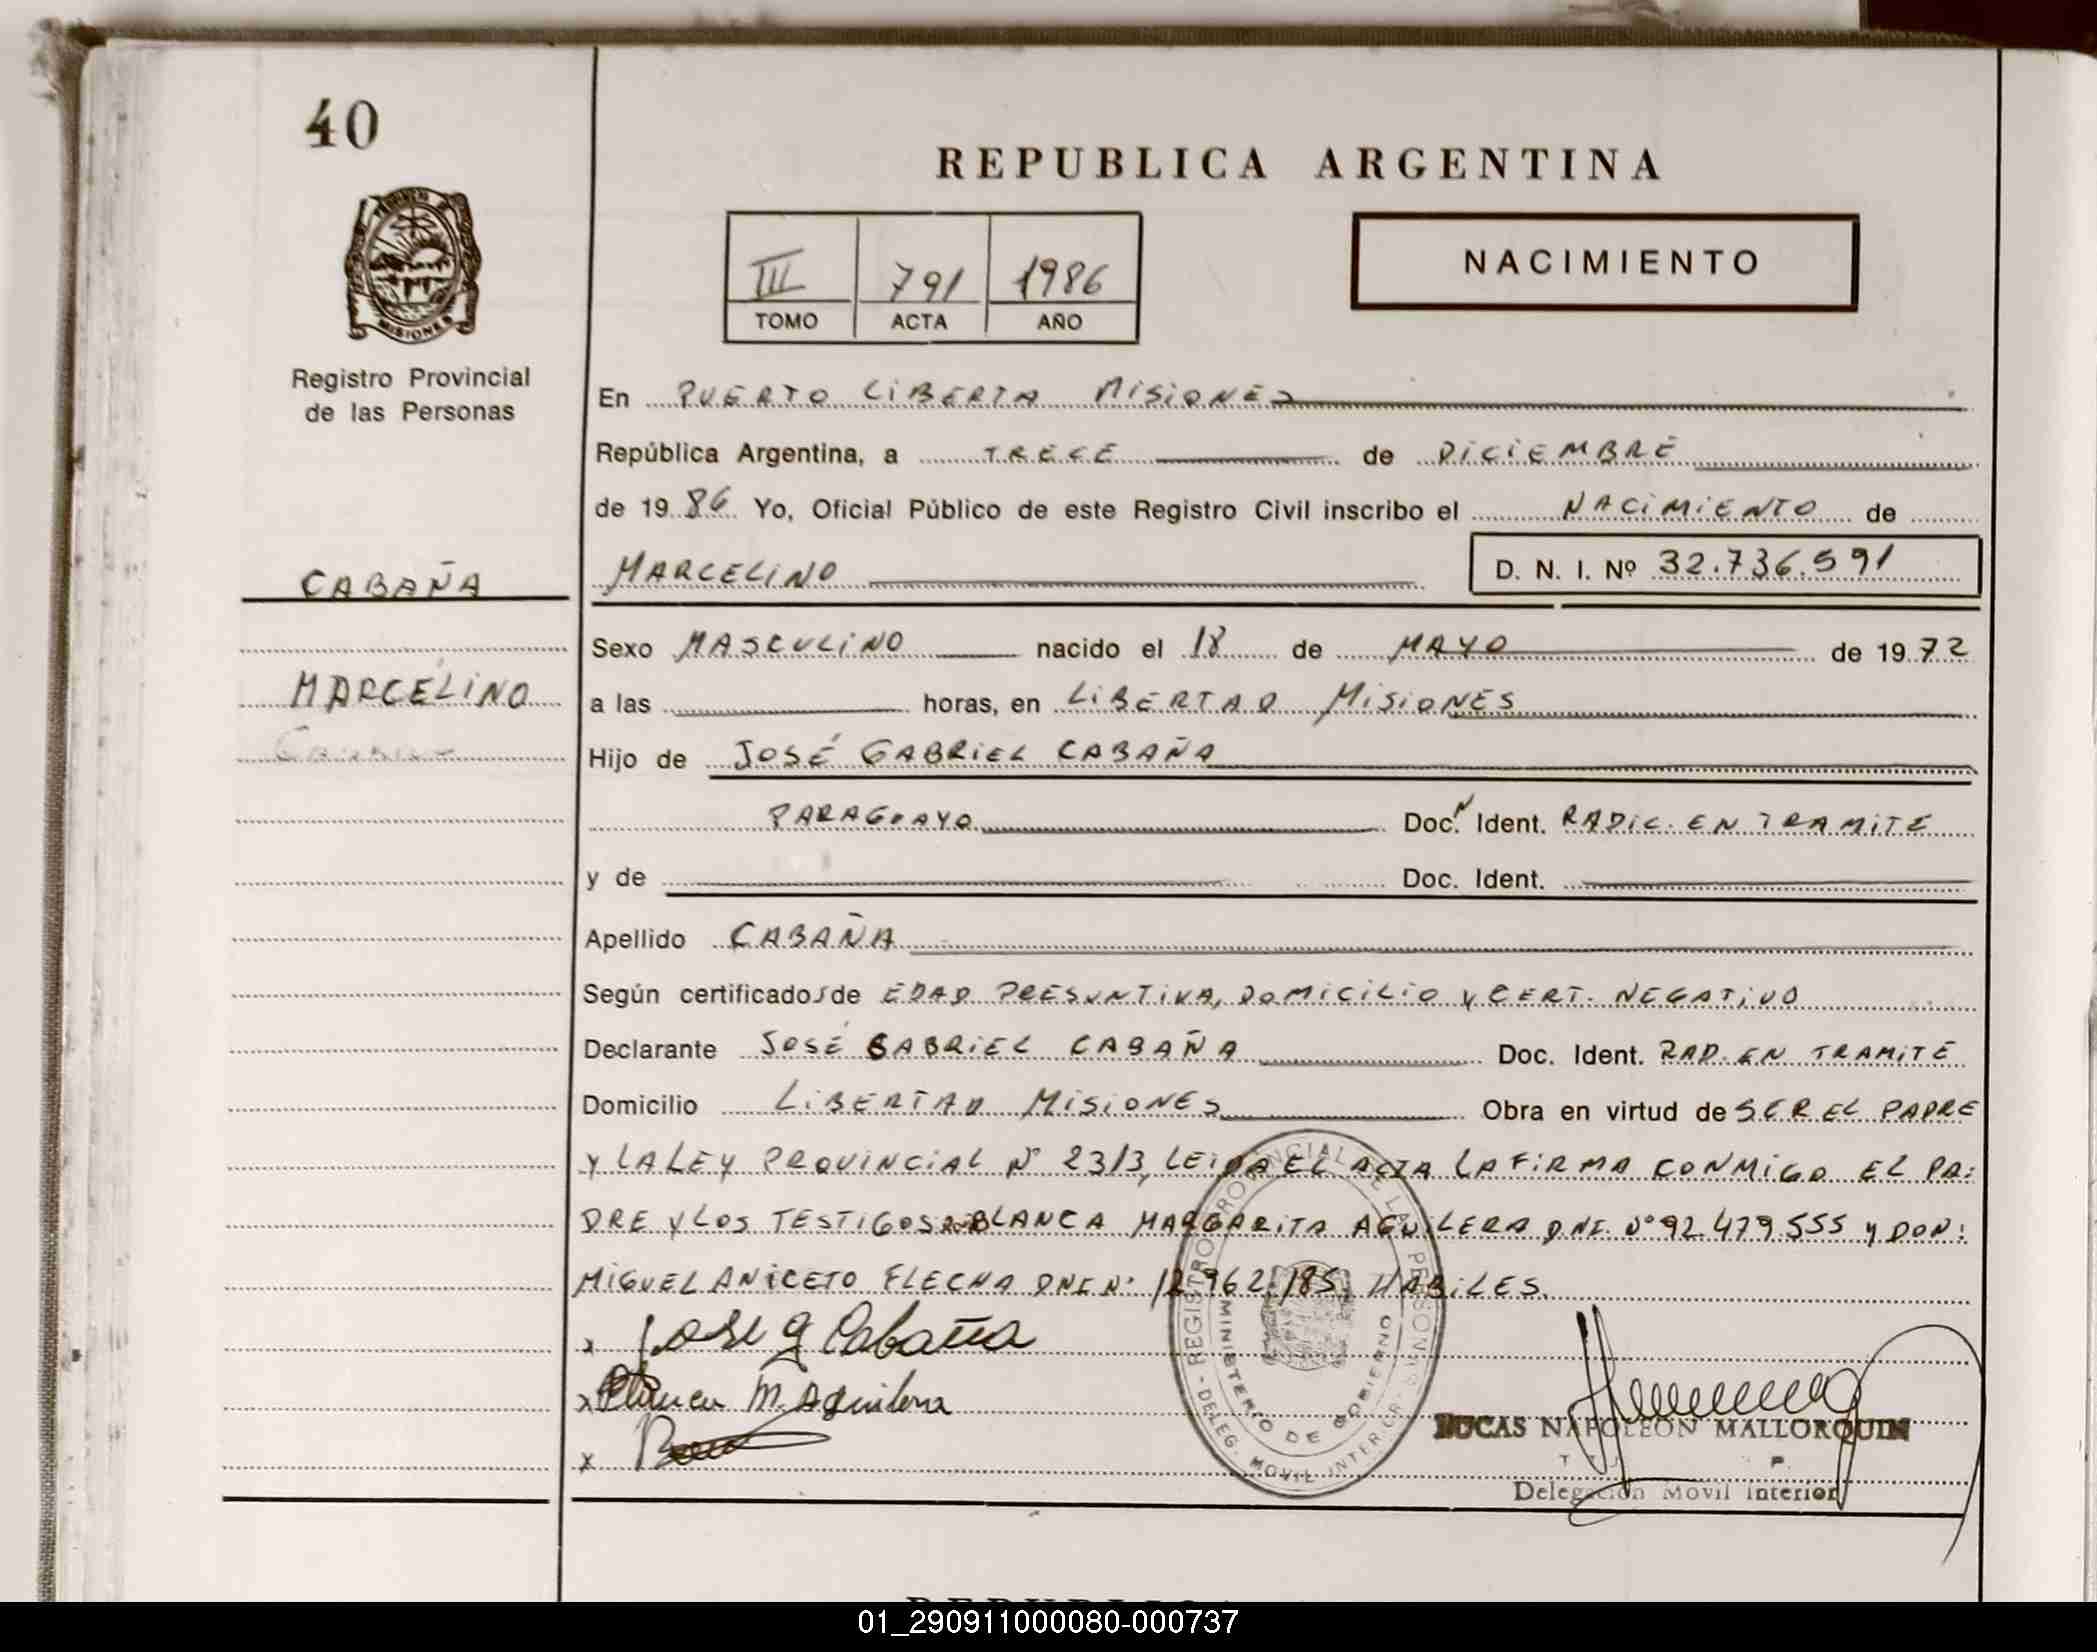 40
REPUBLICA ARGENTINA
III 791 1986
TOMO ACTA AÑO
NACIMIENTO
MISIONES
Registro Provincial
de las Personas
En PUERTO LIBERTA MISIONES
República Argentina, a TRECE de DICIEMBRE
de 1986 Yo, Oficial Público de este Registro Civil inscribo el NACIMIENTO de
CABAÑA
MARCELINO D. N. I. Nº 32.736.591
MARCELINO
Sexo MASCULINO nacido el 18 de MAYO de 1972
a las horas, en LIBERTAD MISIONES
Hijo de JOSÉ GABRIEL CABAÑA
PARAGUAYO Doc. N Ident. RADIC. EN TRAMITE
y de Doc. Ident.
Apellido CABAÑA
Según certificado/s de EDAD PRESUNTIVA, DOMICILIO Y CERT. NEGATIVO
Declarante JOSÉ GABRIEL CABAÑA Doc. Ident. RAD. EN TRAMITE
Domicilio LIBERTAD MISIONES Obra en virtud de SER EL PADRE
Y LA LEY PROVINCIAL Nº 2313, LEIDA EL ACTA LA FIRMA CONMIGO EL PA:
DRE Y LOS TESTIGOS BLANCA MARGARITA AGUILERA DNI. Nº 92.479.555 Y DON:
MIGUEL ANICETO FLECHA DNI Nº 12.962.185, HABILES.
x Jose G Cabaña
x Blanca M. Aguilera
x
REGISTRO PROVINCIAL DE LAS PERSONAS - DELEG. MOVIL INTERIOR -
MINISTERIO DE GOBIERNO
LUCAS NAPOLEON MALLORQUIN
Delegación Movil Interior
01_290911000080-000737